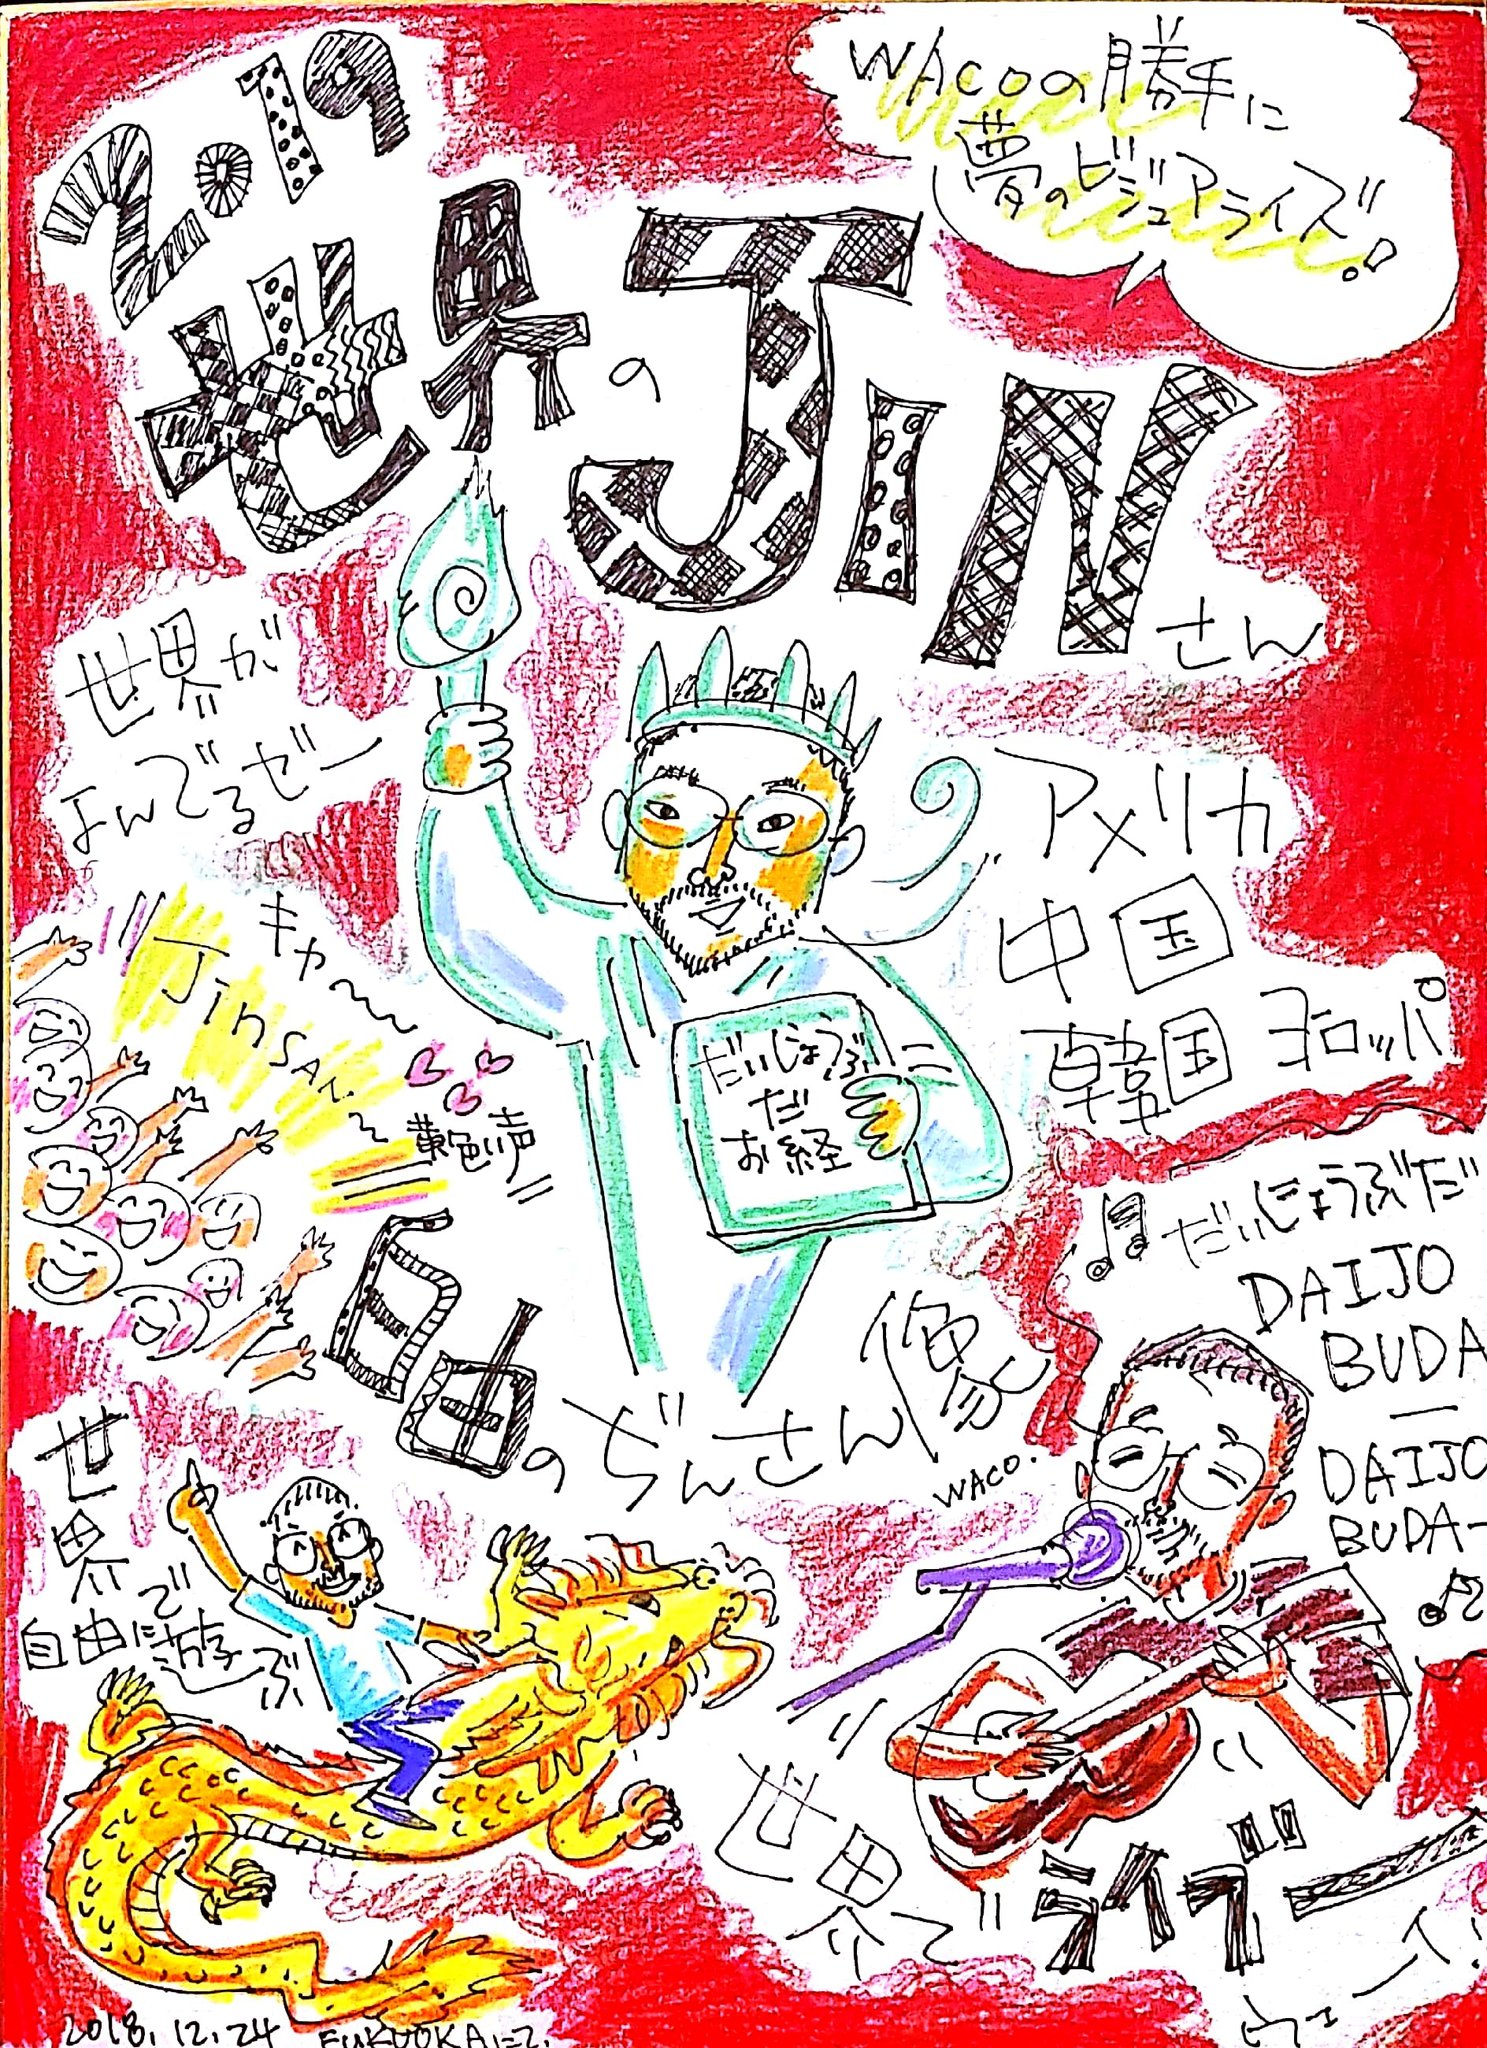 WACOの勝手に
夢のビジュアライズ!
2019
世界の
JIN
さん
世界が
よんでるぜー
アメリカ
中国
韓国 ヨーロッパ
キャ〜
JINSAN〜
黄色い声
だいじょうぶ
だ
お経
自由のぢんさん像
WACO.
だいじょうぶだ
DAIJO
BUDA
DAIJO
BUDA-
世界で
自由に遊ぶ
世界で
ライブー
ウェーイ!
2018.12.24 FUKUOKAにて